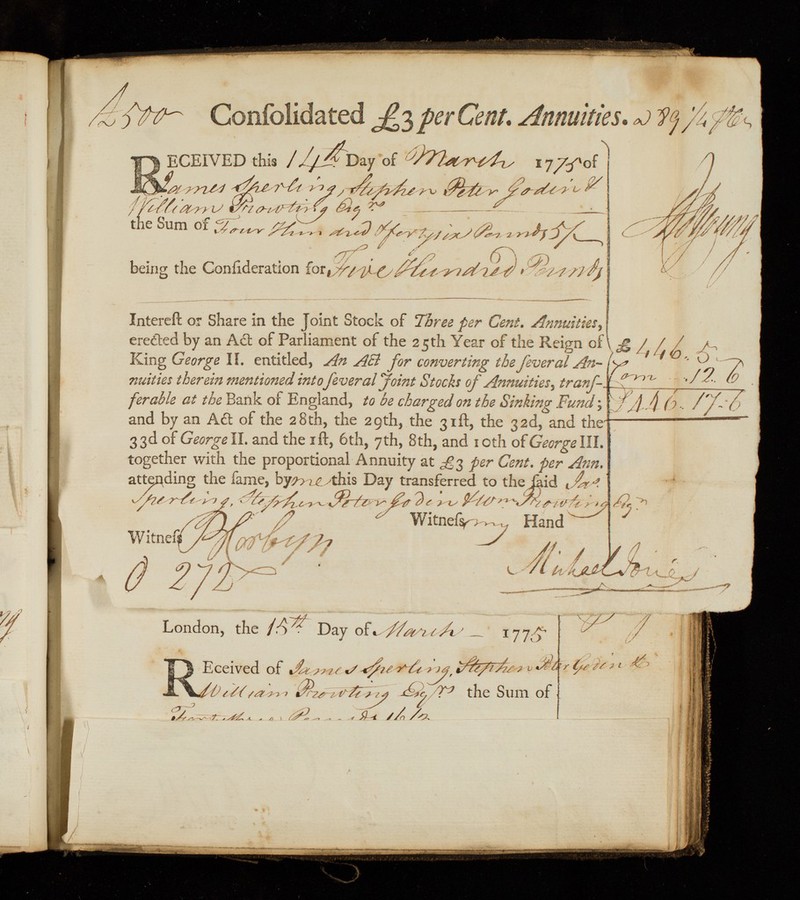 £500 Conſolidated £3 per Cent. Annuities. a 89 1/4 ⅌ Ct
RECEIVED this 14th Day of March 1775 of
James Sperling, Stephen Peter Godin &
William Prowting Esqrs
the Sum of Four Hundred & fortysix Pounds 5/-
being the Conſideration for Five Hundred Pounds
Young
Intereſt or Share in the Joint Stock of Three per Cent. Annuities,
erected by an Act of Parliament of the 25th Year of the Reign of
King George II. entitled, An Act for converting the ſeveral An-
nuities therein mentioned into ſeveral Joint Stocks of Annuities, tranſ-
ferable at the Bank of England, to be charged on the Sinking Fund;
and by an Act of the 28th, the 29th, the 31ſt, the 32d, and the
33d of George II. and the 1ſt, 6th, 7th, 8th, and 10th of George III.
together with the proportional Annuity at £3 per Cent. per Ann.
attending the ſame, by me this Day transferred to the ſaid Jas.
Sperling, Stephen Peter Godin & Wm Prowting Esqrs
£446. 5 -
Com - 12. 6
£446. 17. 6
Witneſs my Hand
Witneſs P Corbyn
Michael Jones
272
London, the 15th Day of March - 1775
REceived of James Sperling, Stephen Peter Godin &
William Prowting Esqrs the Sum of